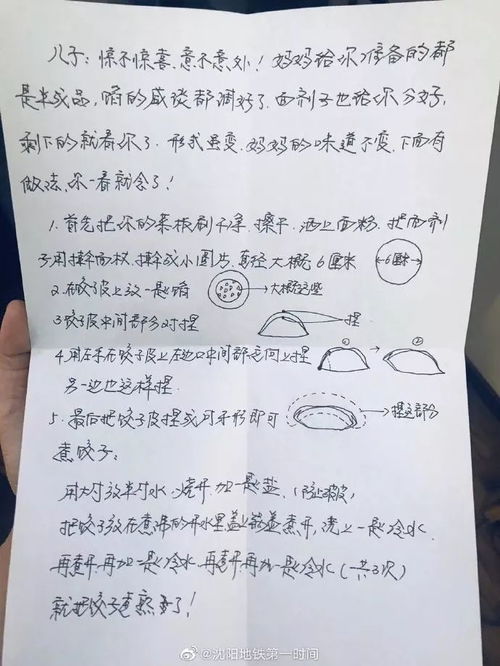 儿子：惊不惊喜、意不意外！妈妈给你准备的都
是半成品，馅的咸淡都调好了，面剂子也给你分好，
剩下的就看你了．形式虽变，妈妈的味道不变，下面有
做法，你一看就会了！
1. 首先把你的菜板刷干净、擦干，洒上面粉，把面剂
子用擀面杖，擀成小圆片，直径大概6厘米
6厘米
2. 在饺子皮上放一点馅
大概这些
3. 饺子皮中间部分对捏
捏
4. 用左手在饺子皮上左边口中间部 向上捏
另一边也这样捏．
① ②
5. 最后把饺子皮捏成月牙形即可
捏这部分
煮饺子：
用大勺放半勺水，烧开，加一点盐．（防止破皮）
把饺子放在煮沸的开水里盖上锅盖煮开，浇上一点冷水
再煮开，再加一点冷水，再煮开再加一点冷水（一共3次）
就把饺子煮熟了！
@沈阳地铁第一时间